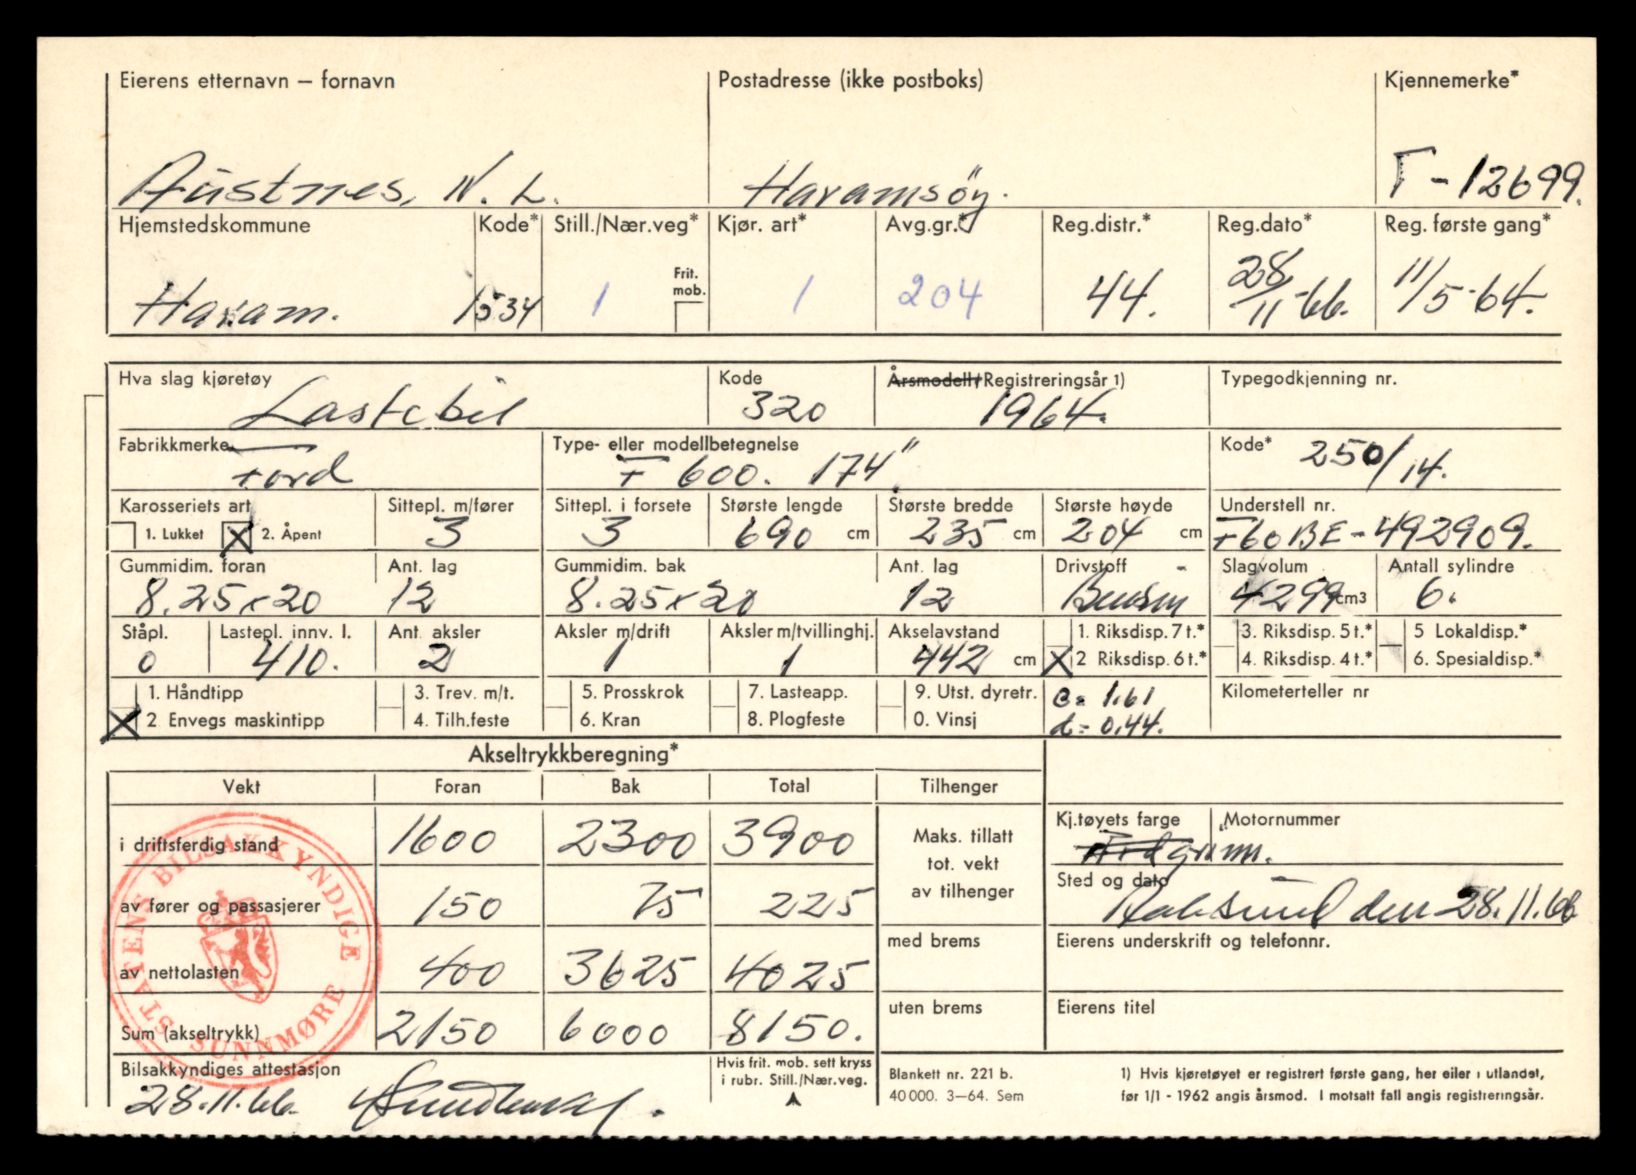 Eierens etternavn – fornavn Postadresse (ikke postboks) Kjennemerke*
Austnes, N. L. Haramsöy. T-12699.
Hjemstedskommune Kode* Still./Nær.veg* Kjør. art* Avg.gr.* Reg.distr.* Reg.dato* Reg. første gang*
Frit. mob.
Haram. 1534 1 1 204 44. 28/11-66. 11/5-64.
Hva slag kjøretøy Kode Årsmodell/Registreringsår 1) Typegodkjenning nr.
Lastebil 320 1964.
Fabrikkmerke Type- eller modellbetegnelse Kode* 250/14.
Ford F 600. 174"
Karosseriets art Sittepl. m/fører Sittepl. i forsete Største lengde Største bredde Største høyde Understell nr.
1. Lukket X 2. Åpent 3 3 690 cm 235 cm 204 cm F60BE-492909.
Gummidim. foran Ant. lag Gummidim. bak Ant. lag Drivstoff Slagvolum Antall sylindre
8.25x20 12 8.25x20 12 Bensin 4299 cm3 6.
Ståpl. Lastepl. innv. l. Ant. aksler Aksler m/drift Aksler m/tvillinghj. Akselavstand 1. Riksdisp. 7 t.* 3. Riksdisp. 5 t.* 5 Lokaldisp.*
0 410. 2 1 1 442 cm X 2 Riksdisp. 6 t.* 4. Riksdisp. 4 t.* 6. Spesialdisp.*
1. Håndtipp 3. Trev. m/t. 5. Prosskrok 7. Lasteapp. 9. Utst. dyretr. a= 1.61 Kilometerteller nr
X 2 Envegs maskintipp 4. Tilh.feste 6. Kran 8. Plogfeste 0. Vinsj d= 0.44.
Akseltrykkberegning*
Vekt Foran Bak Total Tilhenger
i driftsferdig stand 1600 2300 3900 Maks. tillatt tot. vekt av tilhenger
Kj.tøyets farge Motornummer
grønn.
av fører og passasjerer 150 75 225
Sted og dato
den 28.11.66
av nettolasten 400 3625 4025 med brems
Eierens underskrift og telefonnr.
Sum (akseltrykk) 2150 6000 8150. uten brems
Eierens titel
STATENS BILSAKKYNDIGE
SUNNMØRE
Bilsakkyndiges attestasjon Hvis frit. mob. sett kryss
i rubr. Still./Nær.veg.
28.11.66.
Blankett nr. 221 b.
40 000. 3–64. Sem
1) Hvis kjøretøyet er registrert første gang, her eiler i utlandet,
før 1/1 - 1962 angis årsmod. I motsatt fall angis registreringsår.